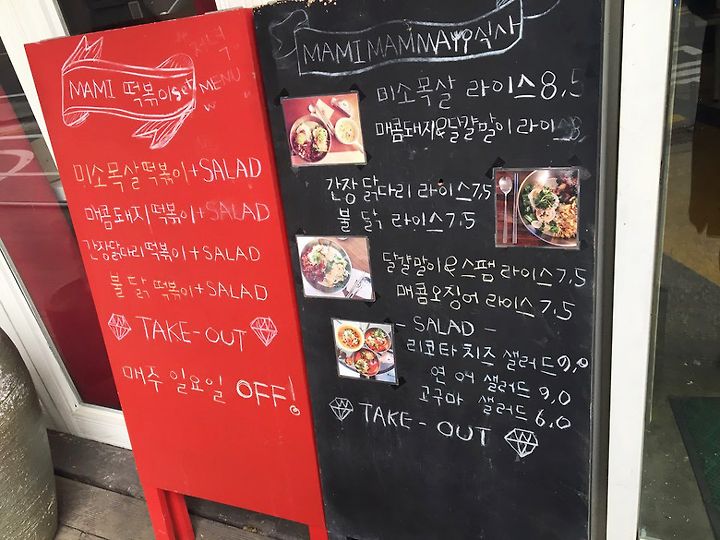 저녁
MENU
MAMI 떡볶이ser
미소목살떡볶이+SALAD
매콤돼지떡볶이+SALAD
간장닭다리떡볶이+SALAD
불닭 떡볶이+SALAD
TAKE-OUT
매주 일요일 OFF!
MAMIMAMMA
미소목살 라이스 8,5
매콤돼지&달걀말이 라이스
간장닭다리 라이스 7,5
불닭 라이스 7.5
달걀말이&스팸 라이스 7,5
매콤오징어 라이스 7.5
- SALAD -
리코타치즈 샐러드 9,0
연어 샐러드 9,0
고구마 샐러드 6.0
TAKE-OUT